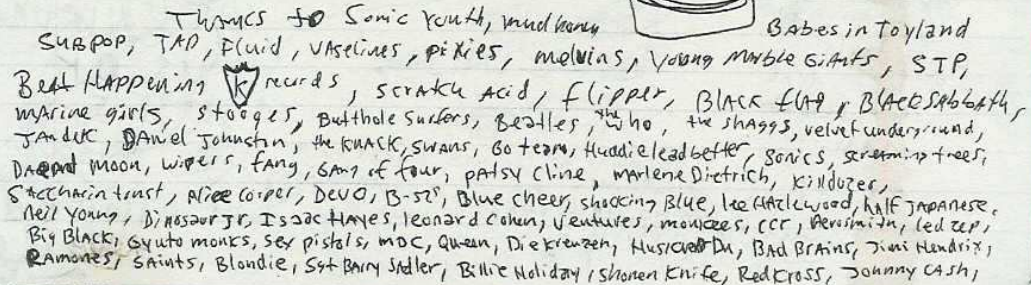 Thanks to Sonic Youth, mudhoney Babes in Toyland
SUBPOP, TAD, Fluid, VASelines, pixies, melvins, Young Marble Giants, STP,
Beat Happening K records, scratch Acid, flipper, Black flag, BLACK SABBATH,
marine girls, stooges, Butthole Surfers, Beatles, the who, the shaggs, velvet underground,
JAndek, DANiel Johnston, the KNACK, SWANS, Go team, Huddie leadbetter, Sonics, screaming trees,
moon, wipers, fang, Gang of four, patsy cline, Marlene Dietrich, Killdozer,
Saccharin trust, Alice Cooper, DevO, B-52s, Blue cheer, shocking Blue, lee Hazlewood, half JAPANese,
Neil Young, Dinosaur Jr, Isaac Hayes, leonard Cohen, ventures, monkees, ccr, Aerosmith, led zep,
Big Black, Gyuto monks, Sex pistols, MDC, Queen, Die kreuzen, Husker Du, BAD BRAins, Jimi Hendrix,
RAMones, SAints, Blondie, Sgt Barry Sadler, Billie Holiday, shonen Knife, Red Cross, Johnny CAsh,